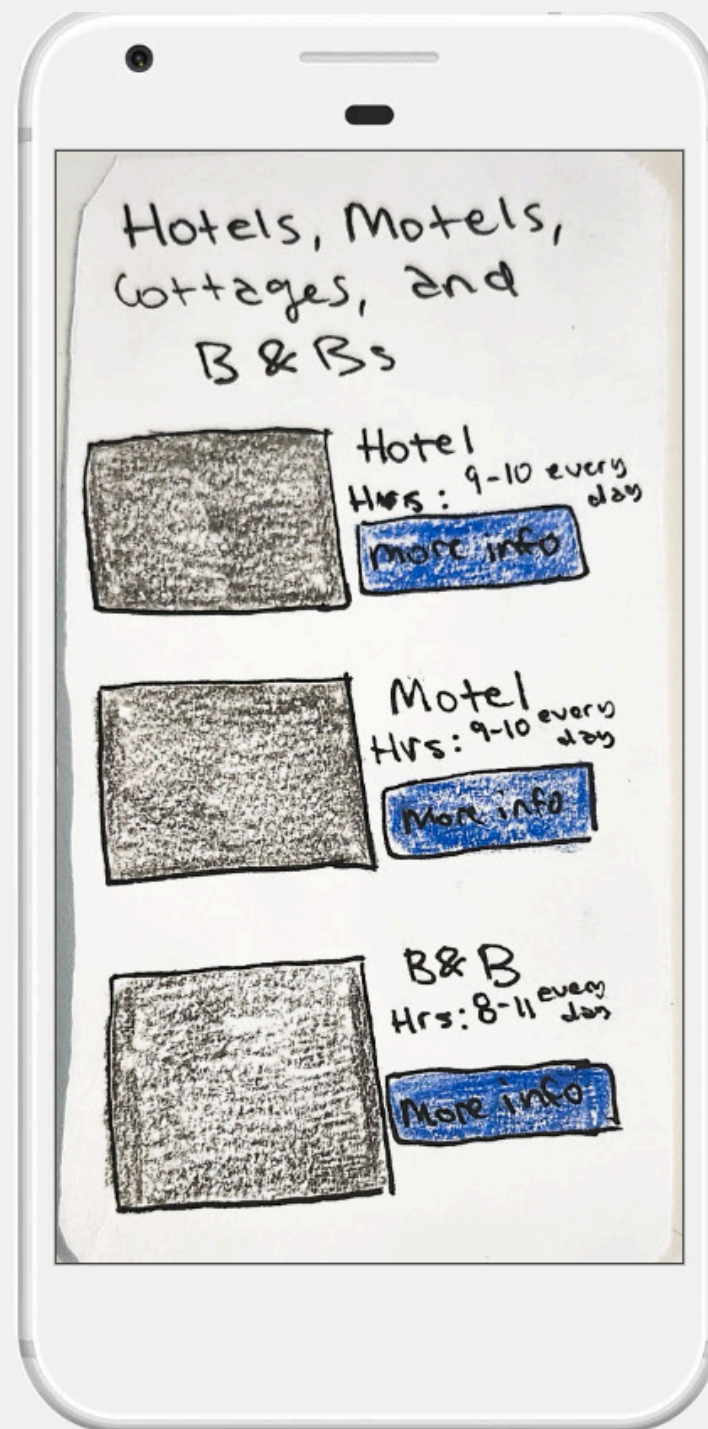 Hotels, Motels,
Cottages, and
B & Bs
Hotel
Hrs: 9-10 every
day
more info
Motel
Hrs: 9-10 every
day
More info
B&B
Hrs: 8-11 every
day
More info